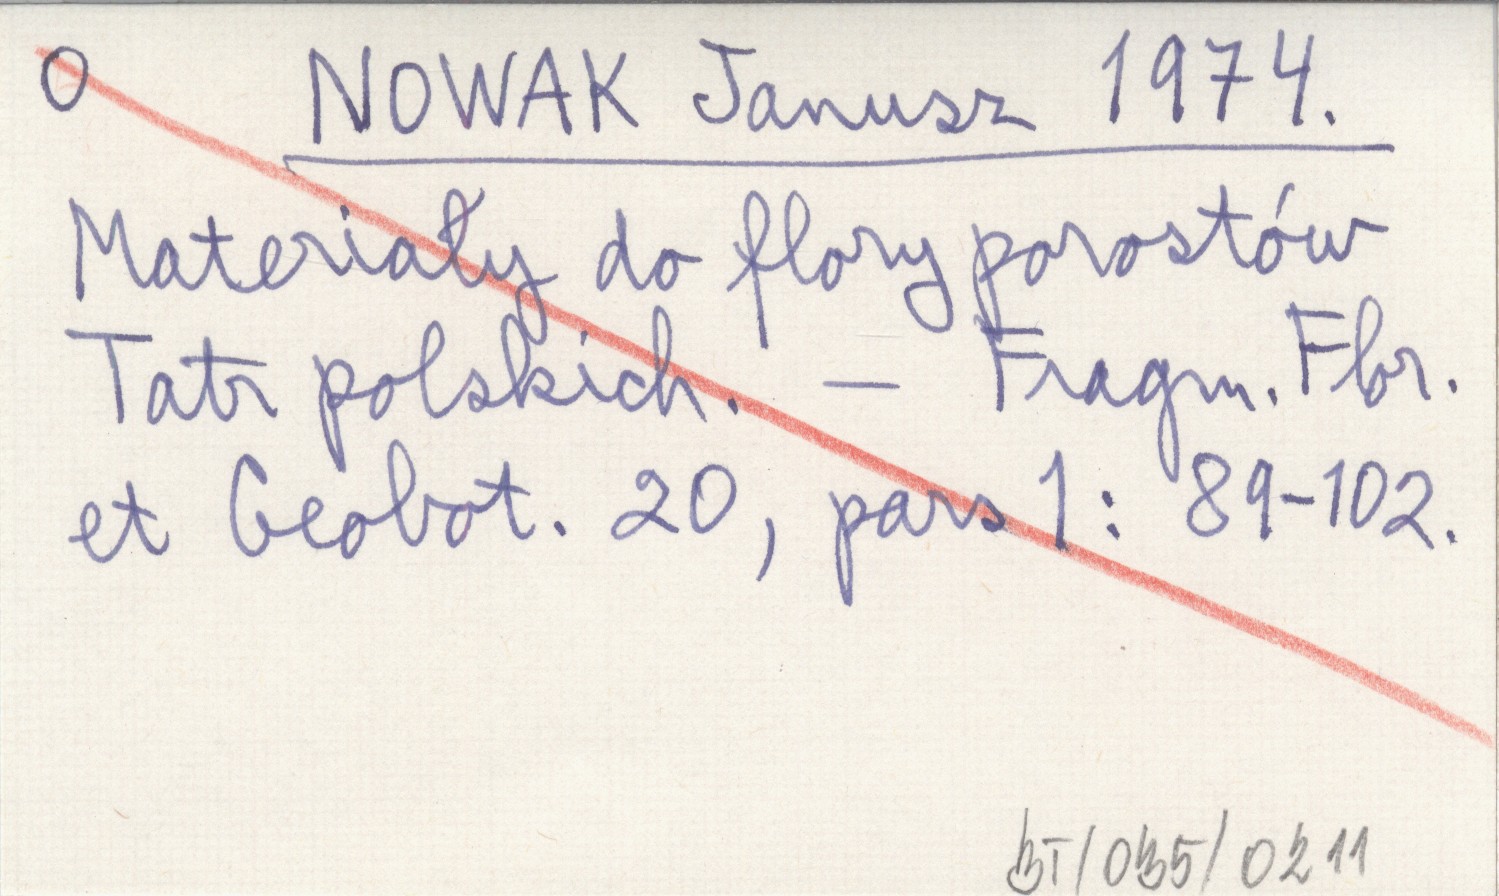 O NOWAK Janusz 1974.
Materiały do flory porostów
Tatr polskich. — Fragm. Flor.
et Geobot. 20, pars 1: 89-102.